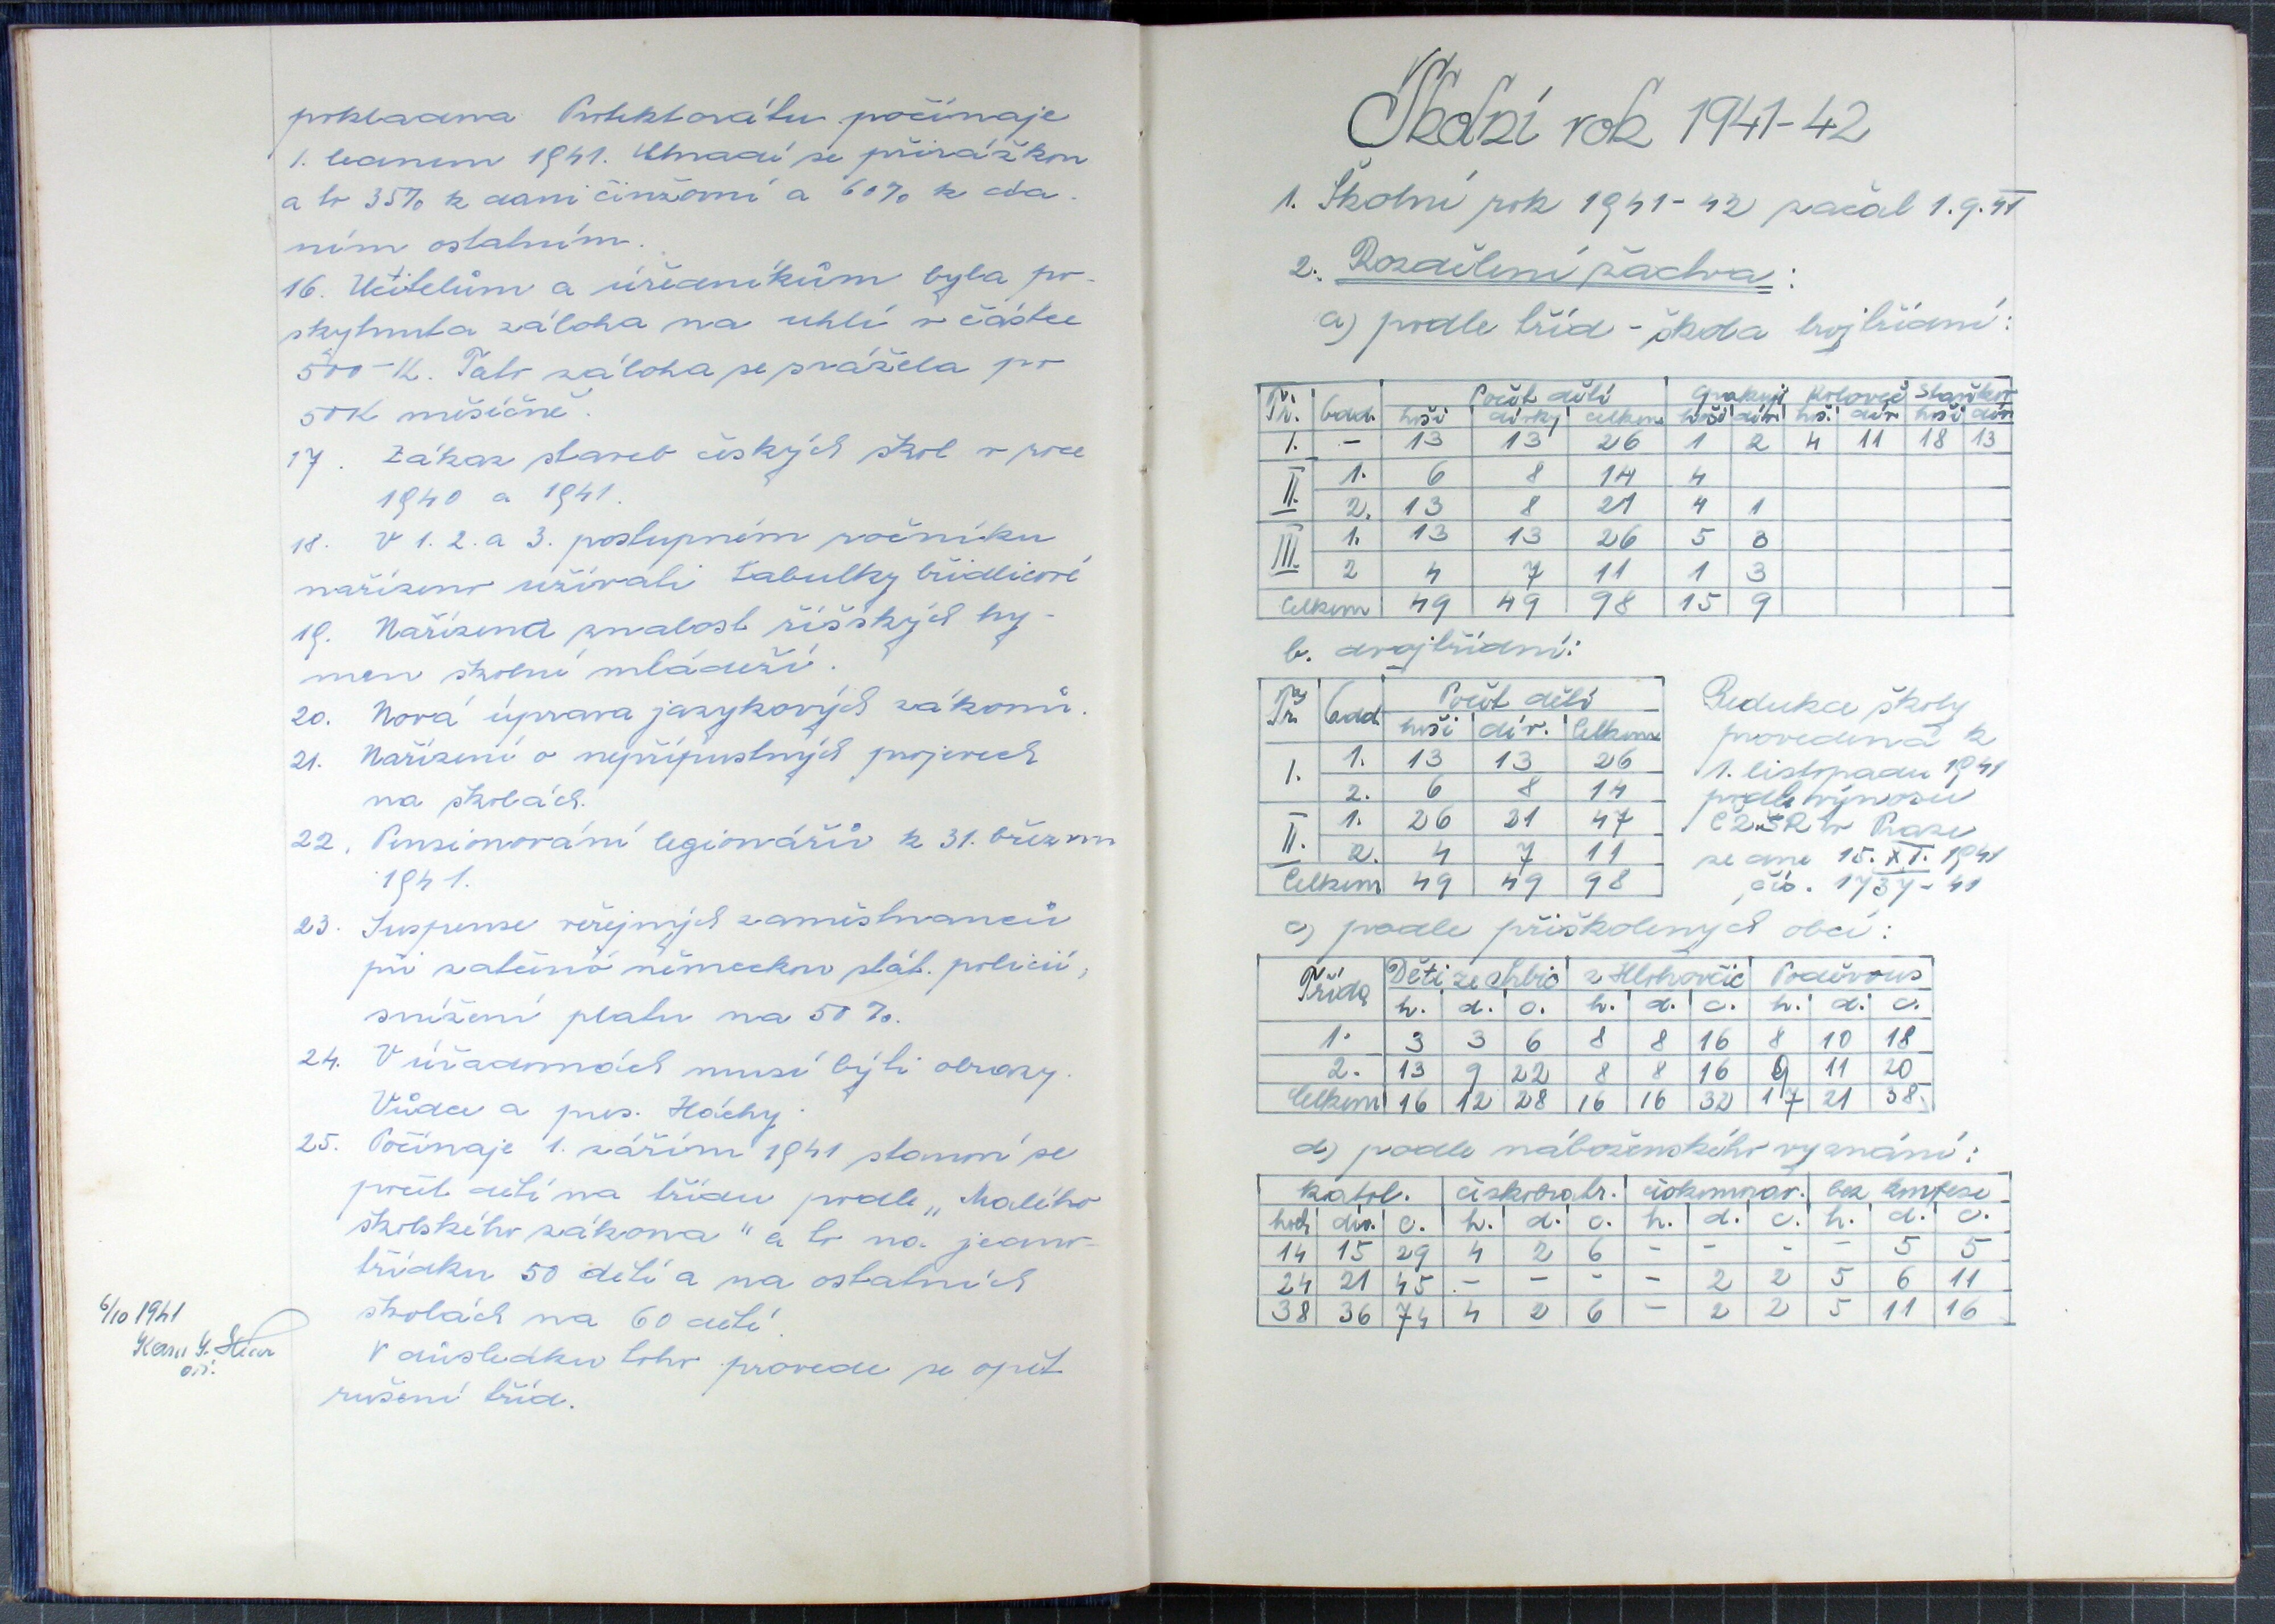 pokladna Protektorátu počínaje
1. lednem 1941. Uhradí se přirážkou
a to 35% k dani činžovní a 60% k da-
ním ostatním.
16. Učitelům a úředníkům byla po-
skytnuta záloha na uhlí v částce
500-K. Tato záloha se srážela po
50K měsíčně.
17. Zákaz staveb českých škol v roce
1940 a 1941.
18. V 1. 2. a 3. postupném ročníku
nařízeno užívati tabulky břidlicové
19. Nařízena znalost říšských hy-
men školní mládeží.
20. Nová úprava jazykových zákonů.
21. Nařízení o nepřípustných projevech
na školách.
22. Pensionování legionářů k 31. březnu
1941.
23. Suspense veřejných zaměstnanců
při zatčení německou stát. policií,
snížení platu na 50%.
24. V úřadovnách musí býti obrazy
Vůdce a pres. Háchy.
25. Počínaje 1. zářím 1941 stanoví se
počet dětí na třídu podle „Malého
školského zákona" a to na jedno-
třídku 50 dětí a na ostatních
školách na 60 dětí.
V důsledku toho provede se opět
rušení tříd.
6/10 1941
Školní rok 1941-42
1. Školní rok 1941-42 začal 1.9.41
2. Rozdělení žactva:
a) podle tříd - škola trojtřídní:
Tř. Odd. Počet dětí Opakují Koloveč Staňkov
hoši dívky celkem hoši dív. hoš. dív. hoši dív
I. - 13 13 26 1 2 4 11 18 13
II. 1. 6 8 14 4
2. 13 8 21 4 1
III. 1. 13 13 26 5 3
2 4 7 11 1 3
Celkem 49 49 98 15 9
b. dvojtřídní:
Tř. Odd Počet dětí
hoši dív. Celkem
I. 1. 13 13 26
2. 6 8 14
II. 1. 26 21 47
2. 4 7 11
Celkem 49 49 98
Redukce školy
provedena k
1. listopadu 1941
podle výnosu
ČZŠR v Praze
ze dne 15. XI. 1941
čís. 1737-41
c) podle přiškolených obcí:
Třída Děti ze Srbic z Hlohovčic Poděvous
h. d. c. h. d. c. h. d. c.
1. 3 3 6 8 8 16 8 10 18
2. 13 9 22 8 8 16 9 11 20
Celkem 16 12 28 16 16 32 17 21 38
d) podle náboženského vyznání:
katol. českobratr. českomorav. bez konfese
hoch dív. c. h. d. c. h. d. c. h. d. c.
14 15 29 4 2 6 - - - - 5 5
24 21 45 - - - - 2 2 5 6 11
38 36 74 4 2 6 - 2 2 5 11 16